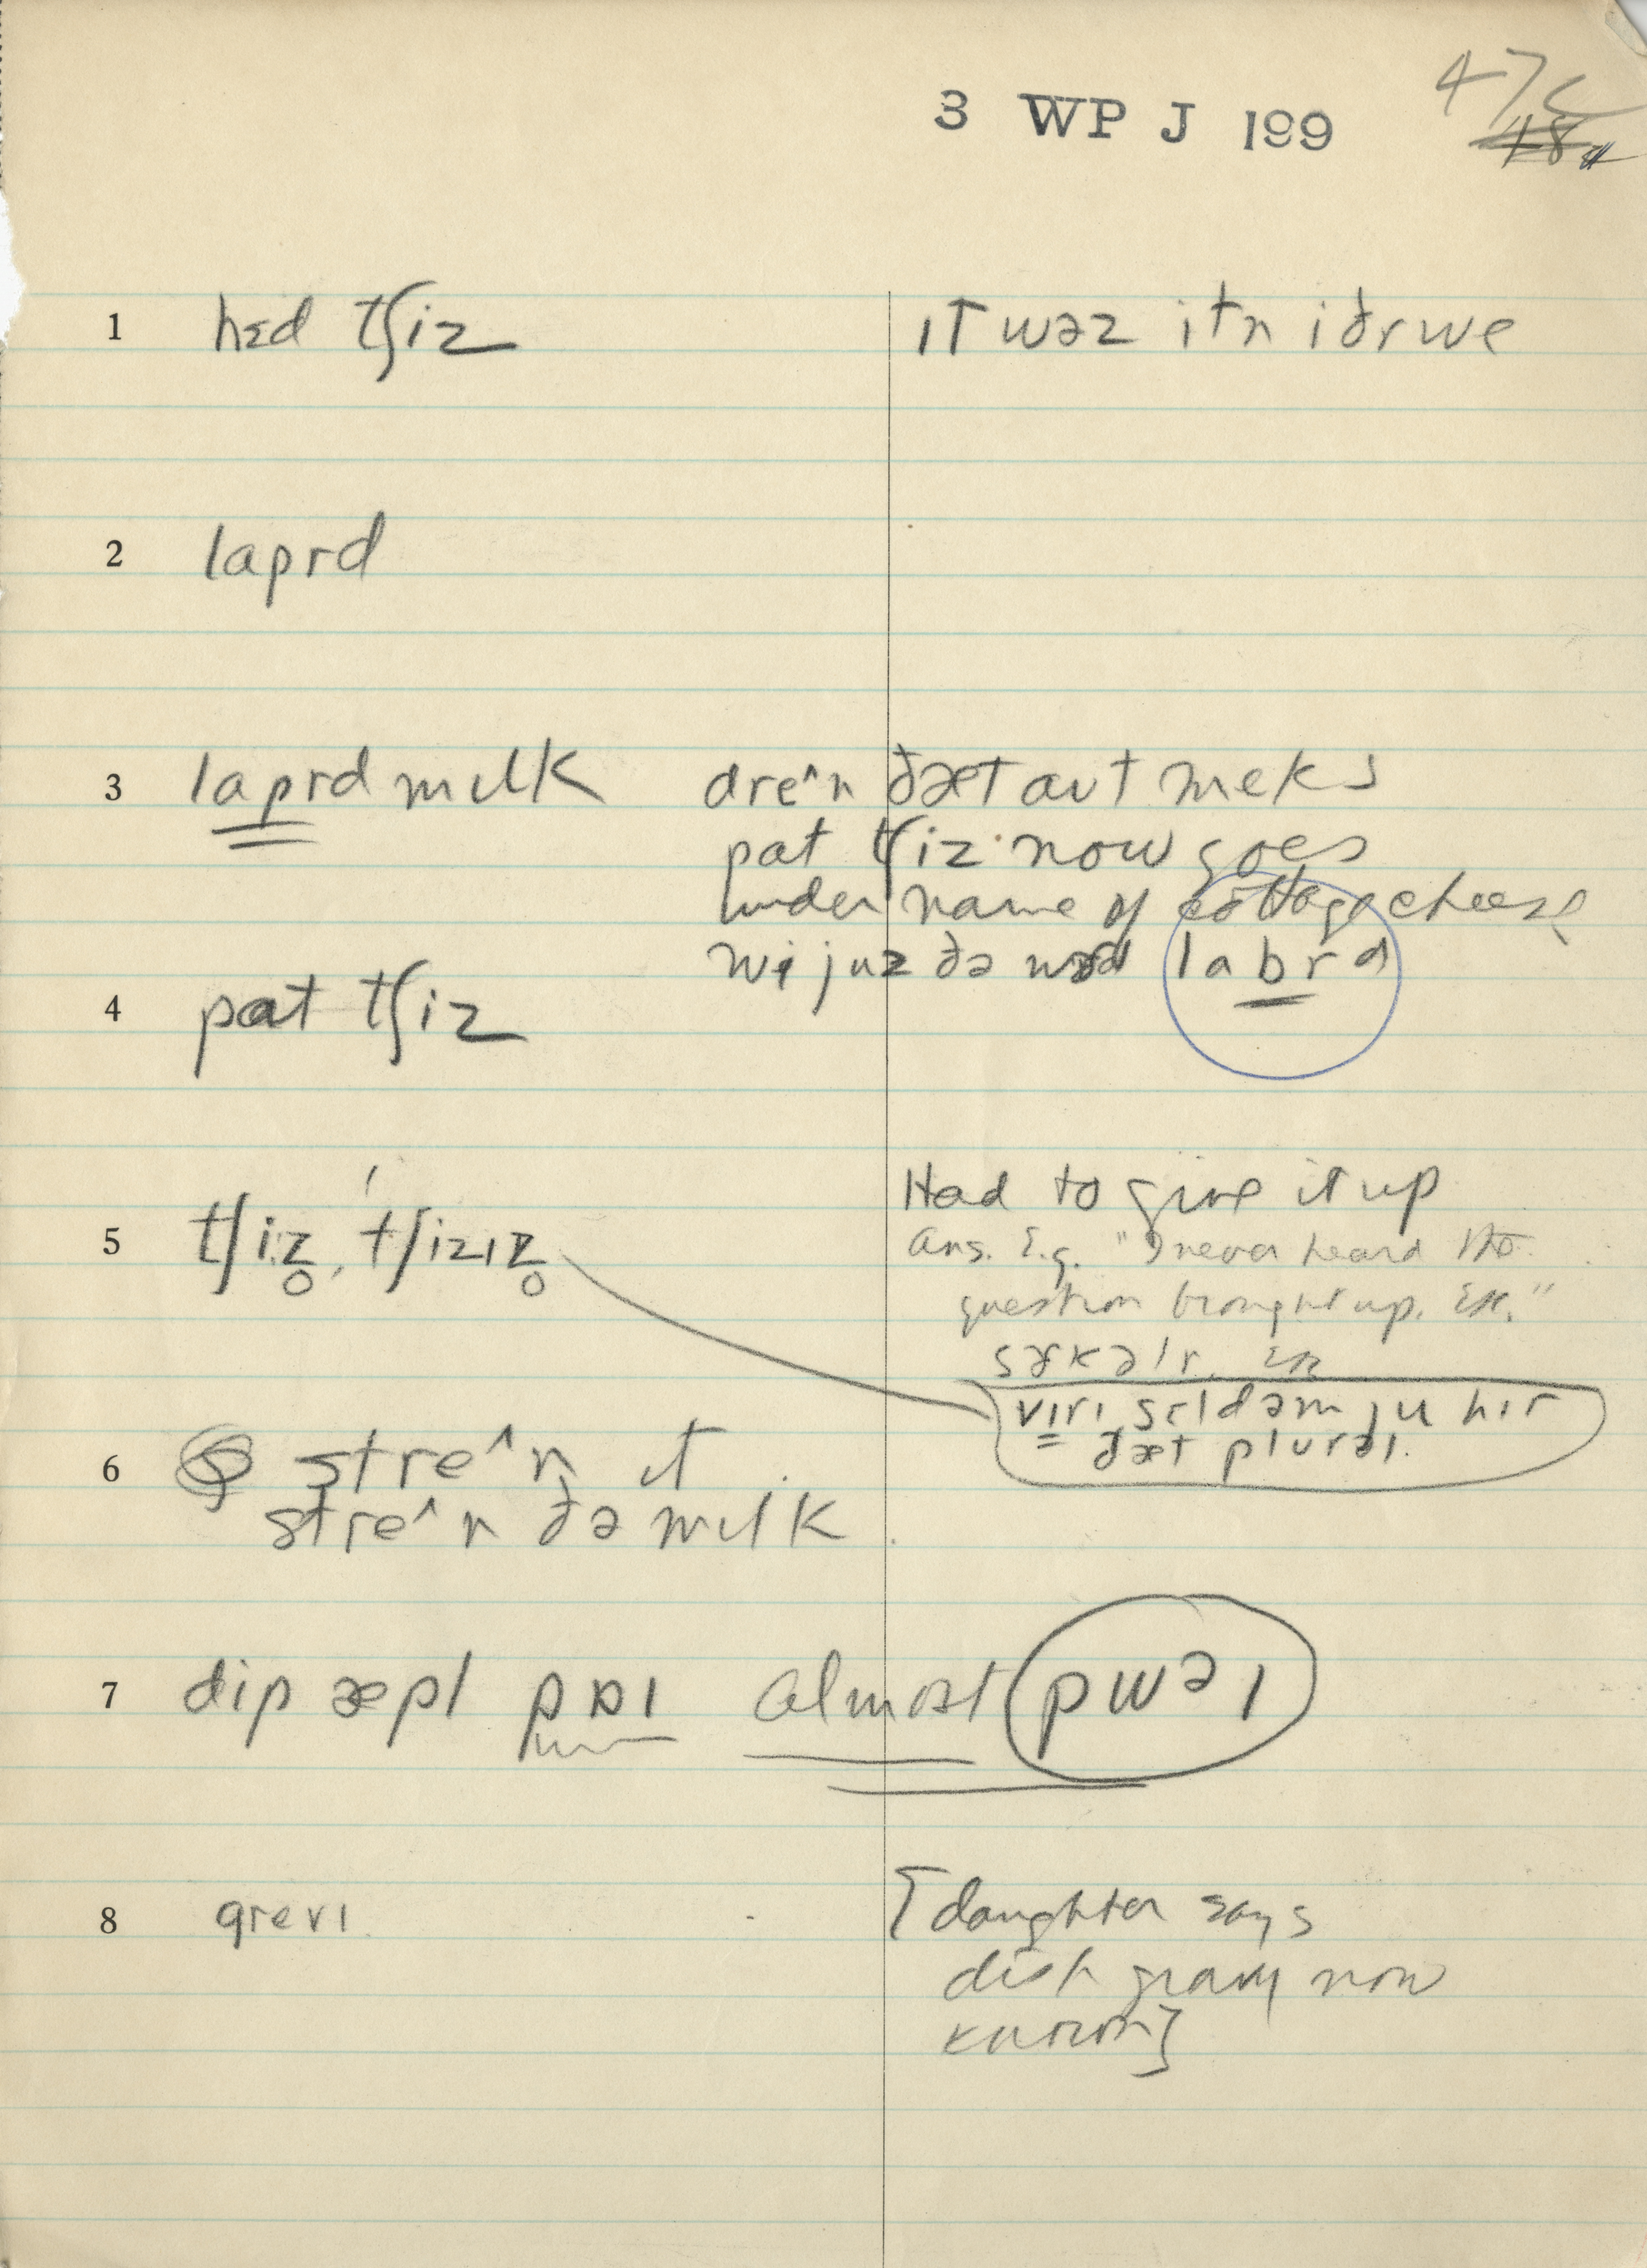 3 WP J 199
47c
1 hɛd tʃiz ıt wəz itn iðr we
2 laprd
3 laprd mılk dre^n ðæt aut meks
pat tʃiz now goes
under name of cottage cheese
wi juz ðə labrd
4 pat tʃiz
5 tʃiz̥, tʃizız̥ Had to give it up
Ans. E.g. "I never heard the
question brought up. etc."
vırı sɛldəm ju hır
ðæt plurəl.
6 stre^n ıt
stre^n ðə mılk
7 dip æpl paı almost pwəı
8 grevı [daughter says
dish gravy now
known]